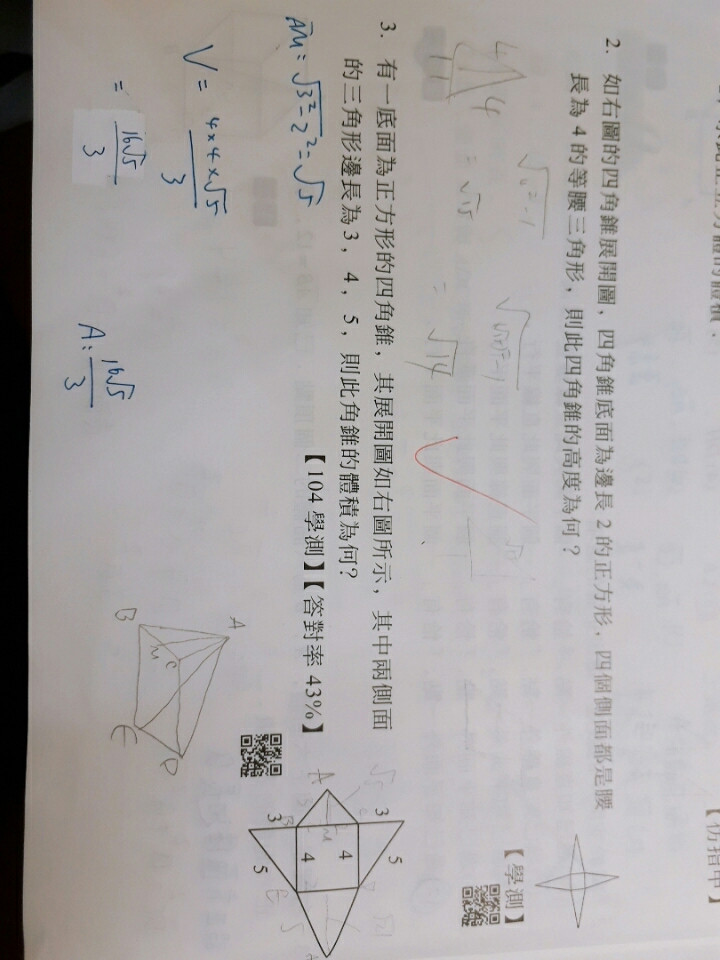 2. 如右圖的四角錐展開圖，四角錐底面為邊長 2 的正方形，四個側面都是腰
長為 4 的等腰三角形，則此四角錐的高度為何？
【學測】
4
4
= √15
= √14
3. 有一底面為正方形的四角錐，其展開圖如右圖所示，其中兩側面
的三角形邊長為 3，4，5，則此角錐的體積為何？
【104 學測】【答對率 43%】
AM = √3²-2² = √5
V = 4×4×√5/3
= 16√5/3
A: 16√5/3
A
B
M
C
E
D
A
3
5
3
B
M
4
4
5
E